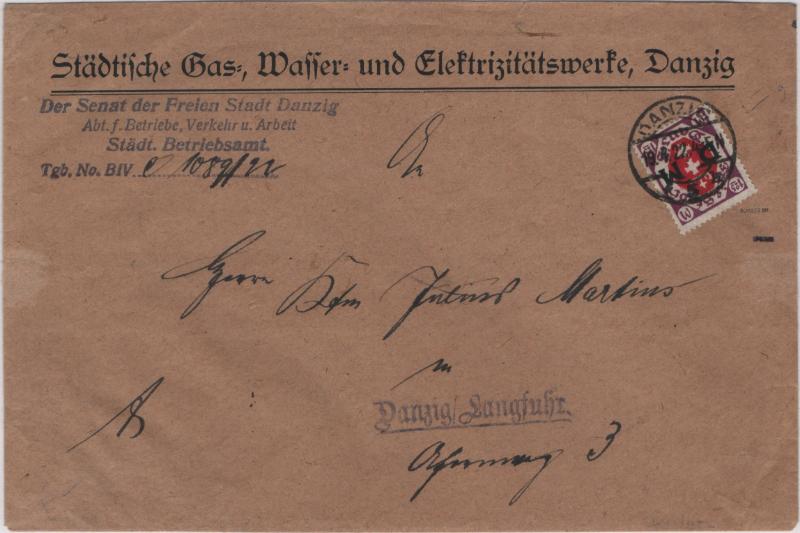 Städtische Gas-, Wasser- und Elektrizitätswerke, Danzig
Der Senat der Freien Stadt Danzig
Abt. f. Betriebe, Verkehr u. Arbeit
Städt. Betriebsamt.
Tgb. No. BIV e 1089/22
DANZIG
D M
An
Herrn Kfm Julius Martins
in
Danzig/Langfuhr.
Ahornweg 3